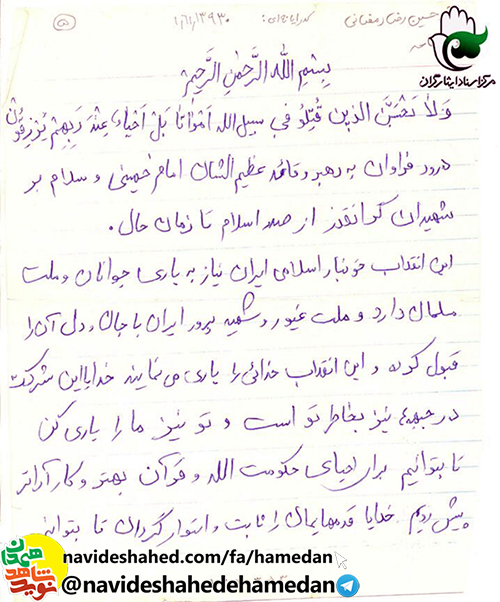 حسین رضا رمضانی
۱۳۹۳۰
۵
مرکز اسناد ایثارگران
بسم الله الرحمن الرحیم
ولا تحسبن الذین قتلو فی سبیل الله امواتا بل احیاء عند ربهم یرزقون
درود فراوان به رهبر و قائد عظیم الشان امام خمینی و سلام بر
شهیدان گرانقدر از صدر اسلام تا زمان حال.
این انقلاب خونبار اسلامی ایران نیاز به یاری جوانان و ملت
مسلمان دارد و ملت غیور و شهید پرور ایران با جان و دل آن را
قبول کرده و این انقلاب خدائی را یاری می نمایند خدایا این شرکت
در جبهه نیز بخاطر تو است و تو نیز ما را یاری کن
تا بتوانیم برای احیای حکومت الله و قرآن بهتر و کارآتر
پیش رویم خدایا قدمهایمان را ثابت و استوار گردان تا بتوانیم
نوید شاهد همدان
navideshahed.com/fa/hamedan
@navideshahedehamedan